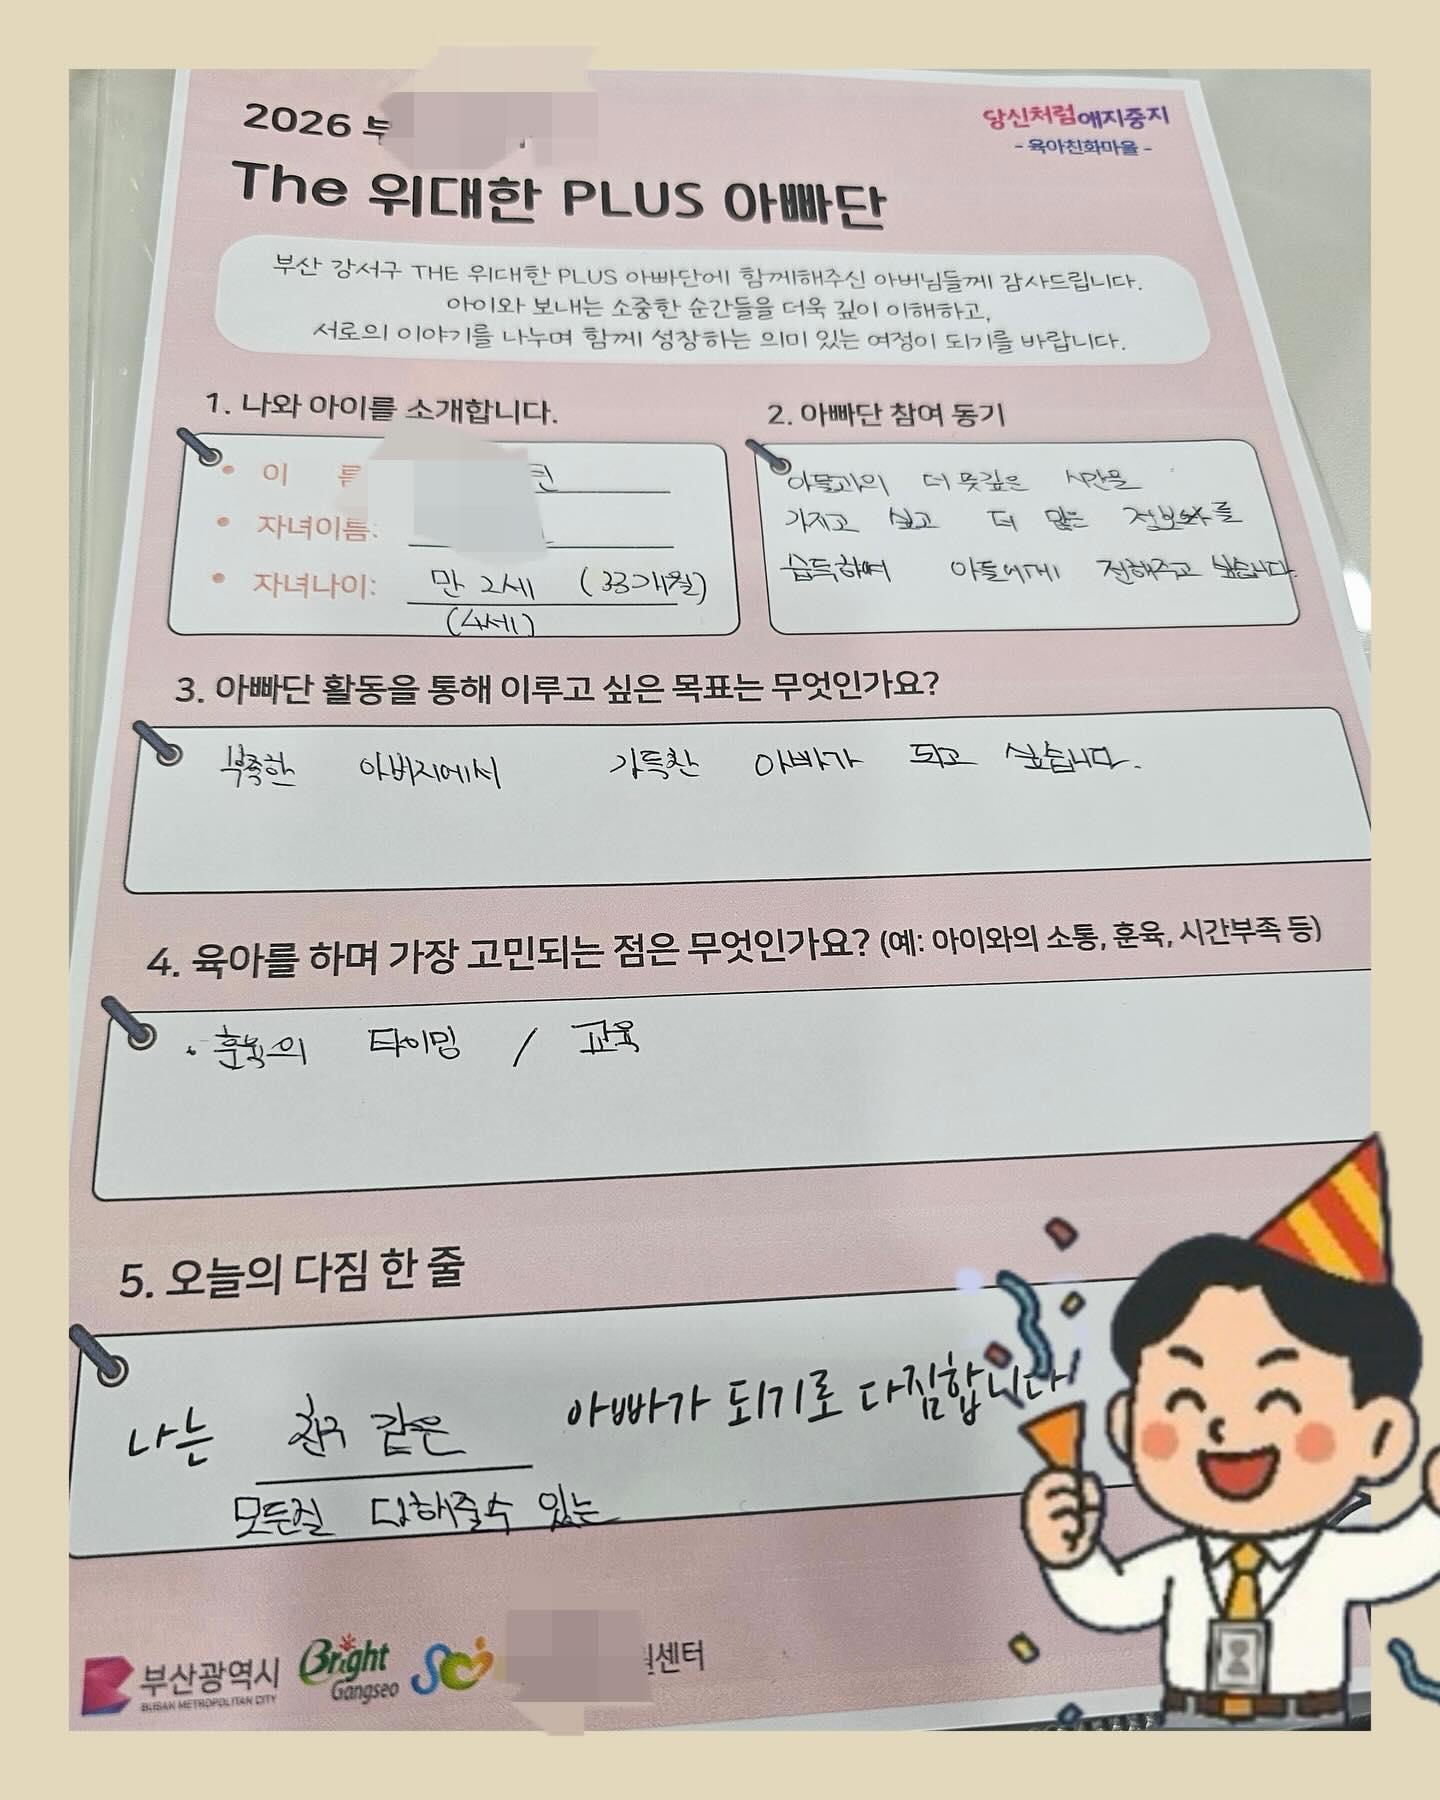 2026 부
당신처럼애지중지
- 육아친화마을 -
The 위대한 PLUS 아빠단
부산 강서구 THE 위대한 PLUS 아빠단에 함께해주신 아버님들께 감사드립니다.
아이와 보내는 소중한 순간들을 더욱 깊이 이해하고,
서로의 이야기를 나누며 함께 성장하는 의미 있는 여정이 되기를 바랍니다.
1. 나와 아이를 소개합니다.
• 이 름
• 자녀이름:
• 자녀나이: 만 2세 (33개월)
(4세)
2. 아빠단 참여 동기
아들과의 더 뜻깊은 시간을
가지고 싶고 더 많은 정보를
습득하여 아들에게 전해주고 싶습니다.
3. 아빠단 활동을 통해 이루고 싶은 목표는 무엇인가요?
부족한 아버지에서 가득찬 아빠가 되고 싶습니다.
4. 육아를 하며 가장 고민되는 점은 무엇인가요? (예: 아이와의 소통, 훈육, 시간부족 등)
· 훈육의 타이밍 / 교육
5. 오늘의 다짐 한 줄
나는 친구 같은 아빠가 되기로 다짐합니다!
모든걸 다해줄수 있는
부산광역시
BUSAN METROPOLITAN CITY
Bright
Gangseo
센터